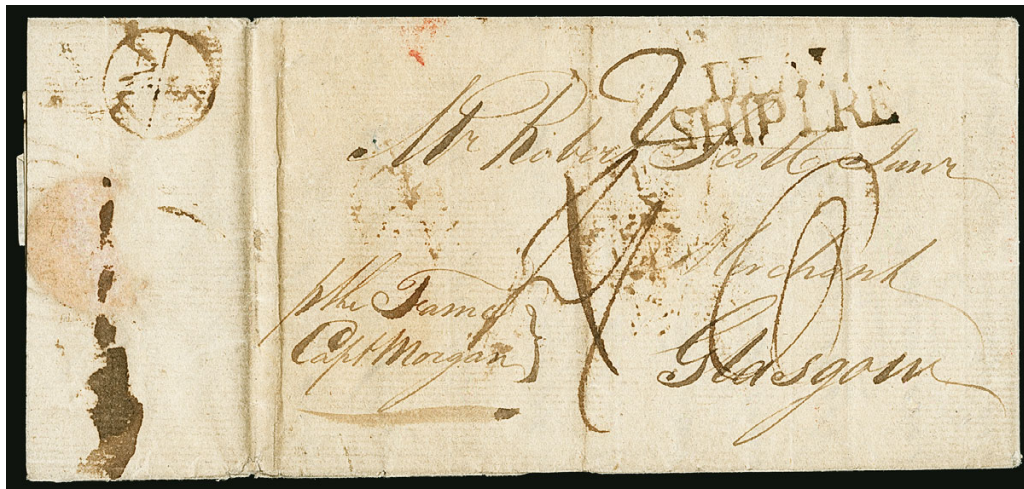 SHIP LRE
Mr Robert Scott Junr
Merchant
Glasgow
p the Fame
Capt Morgan